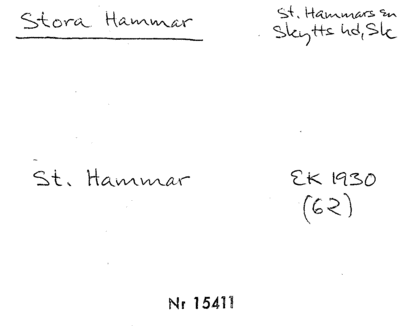 Stora Hammar
St. Hammars sn
Skytts hd, Sk
St. Hammar
EK 1930
(62)
Nr 15411